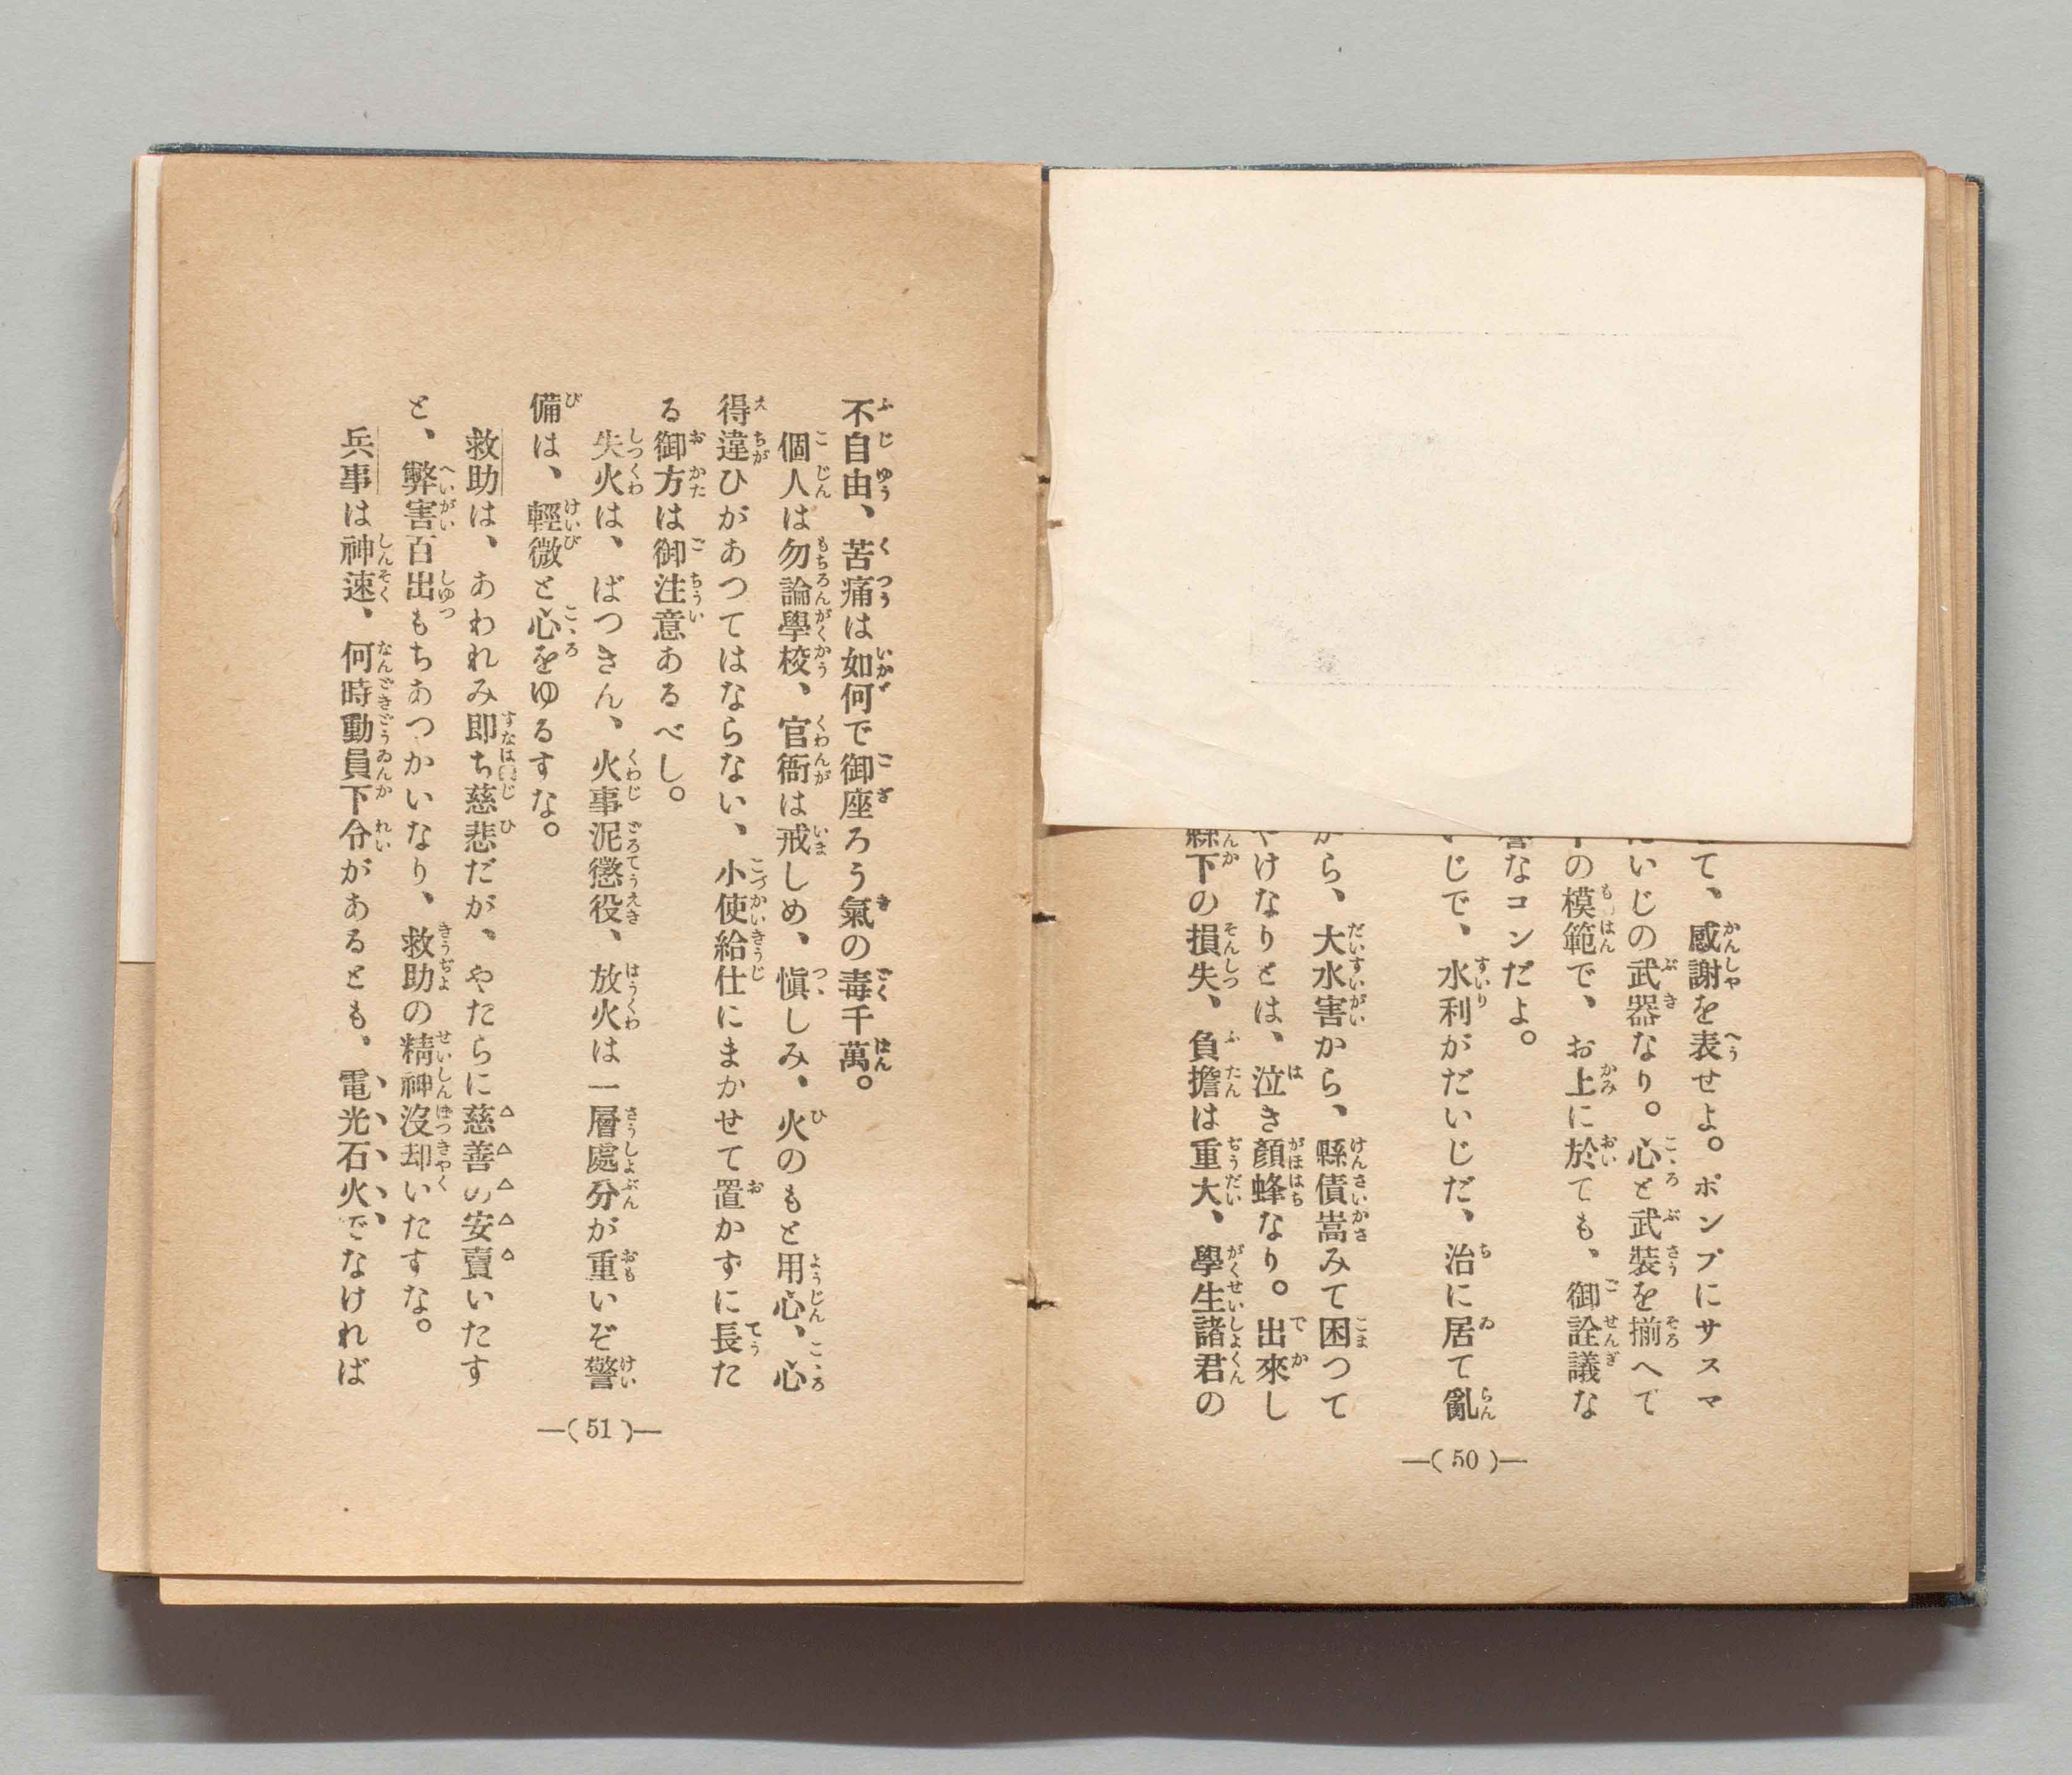 て、感謝を表せよ。ポンプにサスマ
いじの武器なり。心と武裝を揃へて
の模範で、お上に於ても、御詮議な
なコンだよ。
じで、水利がだいじだ、治に居て亂
から、大水害から、縣債嵩みて困つて
やけなりとは、泣き顔蜂なり。出來し
縣下の損失、負擔は重大、學生諸君の
—( 50 )—
不自由、苦痛は如何で御座ろう氣の毒千萬。
個人は勿論學校、官衙は戒しめ、愼しみ、火のもと用心、心
得違ひがあつてはならない、小使給仕にまかせて置かずに長た
る御方は御注意あるべし。
失火は、ばつきん、火事泥懲役、放火は一層處分が重いぞ警
備は、輕微と心をゆるすな。
救助は、あわれみ即ち慈悲だが、やたらに慈善の安賣いたす
と、弊害百出もちあつかいなり、救助の精神沒却いたすな。
兵事は神速、何時動員下令があるとも、電光石火でなければ
—( 51 )—